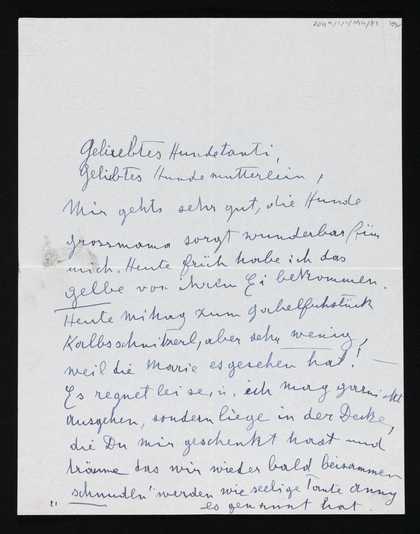 Geliebtes Hundetanti,
Geliebtes Hundemutterlein,
Mir gehts sehr gut, die Hunde
grossmama sorgt wunderbar für
mich. Heute früh habe ich das
gelbe von ihrem Ei bekommen.
Heute Mittag zum Gabelfrühstück
Kalbsschnitzerl, aber sehr wenig,
weil die Marie es gesehen hat! —
Es regnet leise, u. ich mag garnicht
ausgehen, sondern liege in der Decke,
die Du mir geschenkt hast und
träume das wir wieder bald beisammen
schnudln" werden wie seelige Tante Anny
es genannt hat.